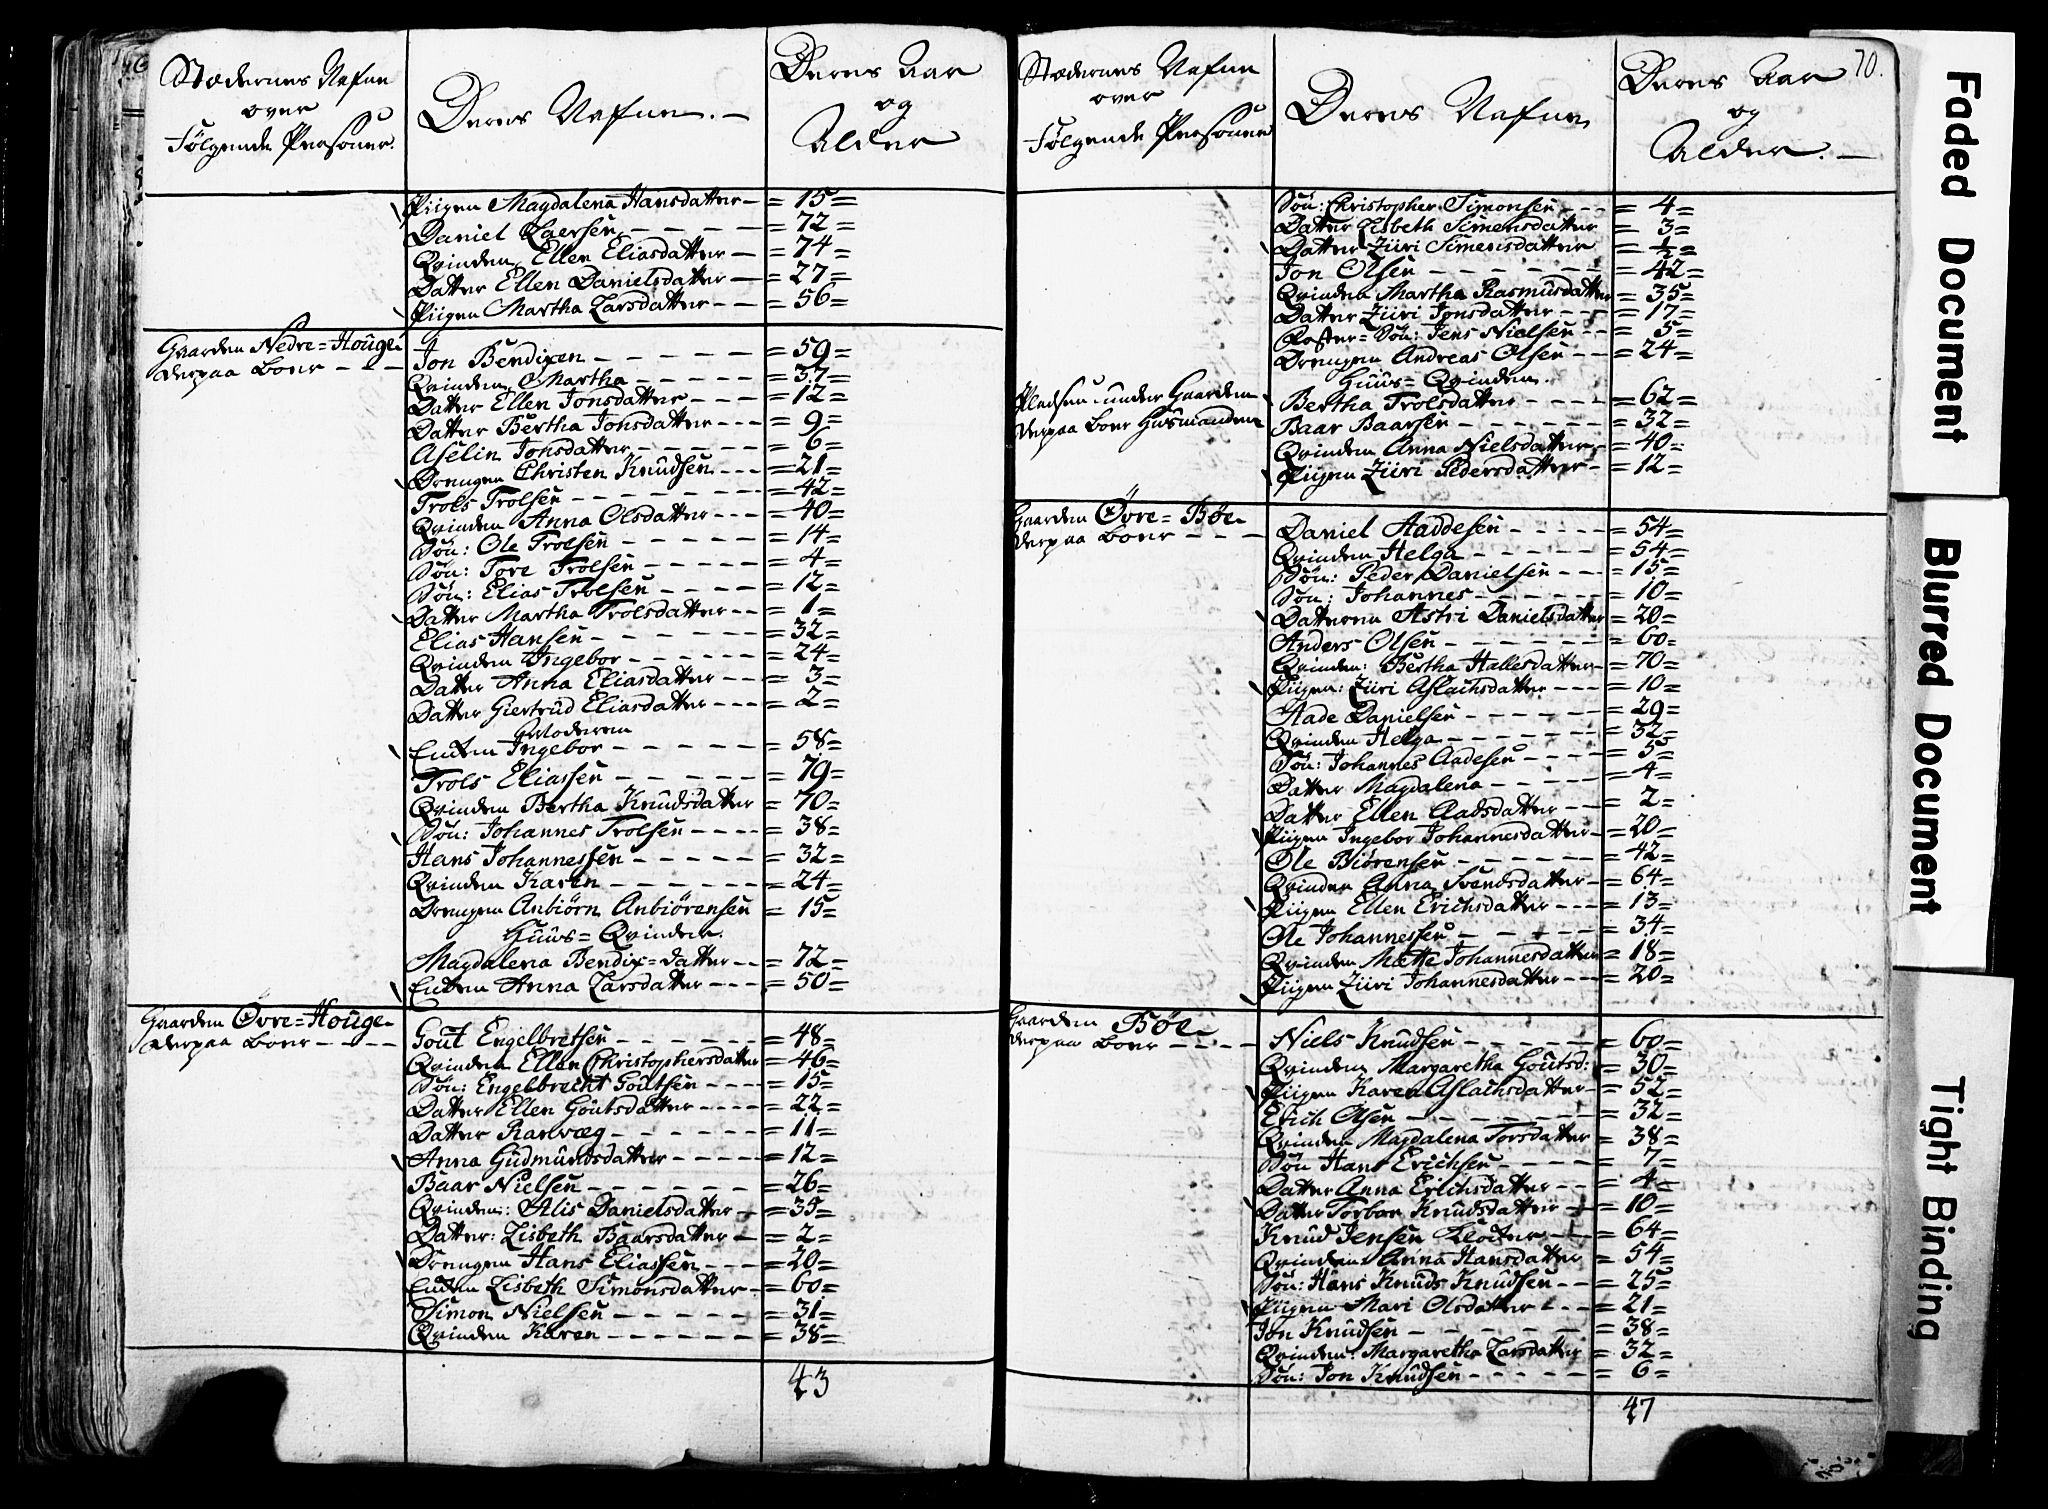 Stædernes Nafne
over
Følgende Persohner.
Deres Nafne. —
Deres Aar
og
Alder
Piigen Magdalena Hansdatter — = 15 =
Daniel Laersen — — — = 72 =
Qvinden Ellen Eliasdatter — = 74 =
Datter Ellen Danielsdatter — = 27 =
Piigen Martha Larsdatter — — = 56 =
Gaarden Nedre = Houge
derpaa boer — — —
Jon Bendixen — — — = 59 =
Qvinden Martha — — — = 37 =
Datter Ellen Jonsdatter — — — = 12 =
Datter Bertha Jonsdatter — — — = 9 =
Aselin Jonsdatter — — — = 6 =
Drengen Christen Knudsen — — — = 21 =
Trols Trolsen — — — = 42 =
Qvinden Anna Olsdatter — — — = 40 =
Søn: Ole Trolsen — — — = 14 =
Søn: Tore Trolsen — — — = 4 =
Søn: Elias Trolsen — — — = 12 =
Datter Martha Trolsdatter — — = 1 =
Elias Hansen — — — = 32 =
Qvinden Ingebor — — — = 24 =
Datter Anna Eliasdatter — — — = 3 =
Datter Giertrud Eliasdatter — — — = 2 =
Moderen
Encken Ingebor — — — = 58 =
Trols Eliassen — — — = 79 =
Qvinden Bertha Knudsdatter = 70 =
Søn: Johannes Trolsen — — — = 38 =
Hans Johannessen — — — = 32 =
Qvinden Karen — — — = 24 =
Drengen Anbiørn Anbiørensen = 15 =
Huus = Qvinder.
Magdalena Bendix = datter — — = 72 =
Encken Anna Larsdatter — — — = 50 =
Gaarden Øvre = Houge
derpaa boer — — —
Gout Engelbretsen — — — = 48 =
Qvinden Ellen Christophersdatter = 46 =
Søn: Engelbrecht Goutsen — — — = 15 =
Datter Ellen Goutsdatter — — — = 22 =
Datter Ranvæg — — — = 11 =
Anna Gudmundsdatter — — — = 12 =
Baar Nielsen — — — = 26 =
Qvinden: Alis Danielsdatter — = 35 =
Datter: Lisbeth Baarsdatter — = 2 =
Drengen Hans Eliassen — — — = 20 =
Encken Lisbeth Simonsdatter — = 60 =
Simon Nielsen — — — = 31 =
Qvinden Karen — — — = 38 =
43
70.
Stædernes Nafne
over
Følgende Persohner
Deres Nafne
Deres Aar
og
Alder. —
Søn: Christopher Simonsen — — — = 4 =
Datter Lisbeth Simensdatter = 3 =
Datter Ziiri Simensdatter = ½ =
Jon Olsen — — — = 42 =
Qvinden Martha Rasmusdatter = 35 =
Datter Ziiri Jonsdatter — — — = 17 =
Foster = Søn: Jens Nielsen — — = 5 =
Drengen Andreas Olsen — — = 24 =
Huus = Qvinden.
Bertha Trolsdatter — — — = 62 =
Pladsen under Gaarden
derpaa boer Huusmanden
Baar Baarsen — — — = 32 =
Qvinden Anna Nielsdatter = 40 =
Piigen Ziiri Pedersdatter — = 12 =
Gaarden Øvre = Bøe
derpaa boer — — —
Daniel Haddesen — — — = 54 =
Qvinden Helga — — — = 54 =
Søn: Peder Danielsen — — — = 15 =
Søn: Johannes — — — = 10 =
Datteren Astri Danielsdatter = 20 =
Anders Olsen — — — = 60 =
Qvinden: Bertha Hallesdatter — = 70 =
Piigen: Ziiri Aslachsdatter — — — = 10 =
Hade Danielsen — — — = 29 =
Qvinden Helga — — — = 32 =
Søn: Johannes Aadesen — — — = 5 =
Datter Magdalena — — — = 4 =
Datter Ellen Aadsdatter — — = 2 =
Piigen Ingebor Johannesdatter — = 20 =
Ole Biørensen — — — = 42 =
Qvinden Anna Svendsdatter — = 64 =
Piigen Ellen Erichsdatter — — — = 13 =
Ole Johannessen — — — = 34 =
Qvinden Mætte Johannesdatter = 18 =
Piigen Ziiri Johannesdatter — — — = 20 =
Gaarden Bøe
derpaa boer — — —
Niels Knudsen — — — = 60 =
Qvinden Margaretha Goutsd: = 30 =
Piigen Karen Aslachsdatter — = 52 =
Erich Olsen — — — = 32 =
Qvinden Magdalena Torsdatter = 38 =
Søn Hans Erichsen — — — = 7 =
Datter Anna Erichsdatter — — = 4 =
Datter Torbor Knudsdatter — = 10 =
Knud Jensen — = 64 =
Qvinden Anna Hansdatter = 54 =
Søn: Hans Knuds Knudsen — — = 25 =
Piigen Mari Olsdatter — — = 21 =
Jon Knudsen — — — = 38 =
Qvinden: Margaretha Larsdatter = 32 =
Søn: Jon Knudsen — — — = 6 =
47
Faded Document
Blurred Document
Tight Binding